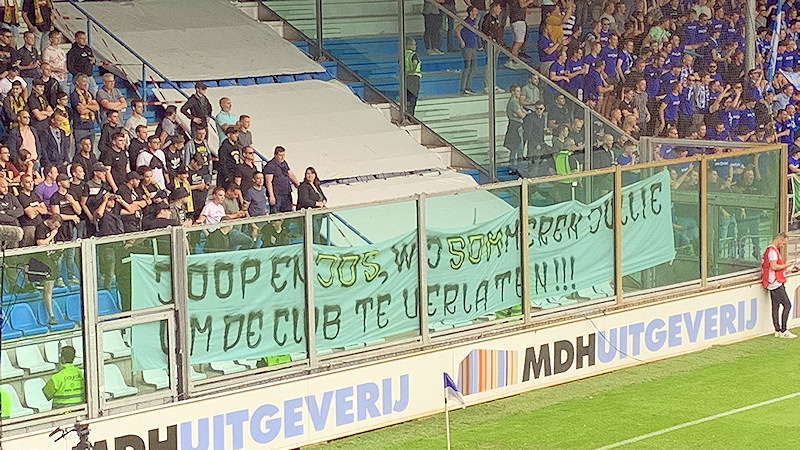 JOOP EN JOS, WIJ SOMMEREN JULLIE
OM DE CLUB TE VERLATEN!!!
MDHUITGEVERIJ
MDHUITGEVERIJ